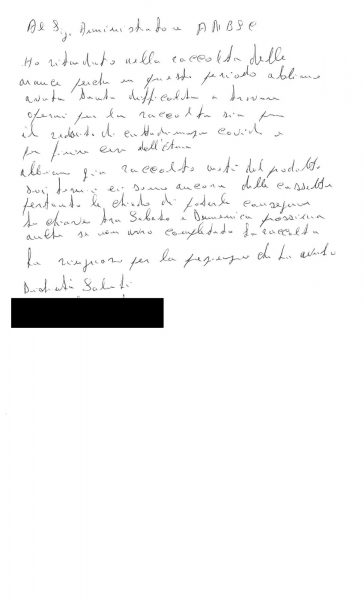 Al Sig. Amministratore AMBSC
Ho ritardato nella raccolta delle
arance perche in questo periodo abbiamo
avuto tanta difficolta a trovare
operai per la raccolta sia per
il reddito di cittadinanza covid e
per
abbiamo gia raccolto metà del prodotto
sui terreni ci sono ancora delle cassette
pertanto le chiedo di poterle consegnare
le chiavi tra Sabato e Domenica prossima
anche se non avro completato la raccolta
La ringrazio per la pazienza che ha avuto
Distinti Saluti